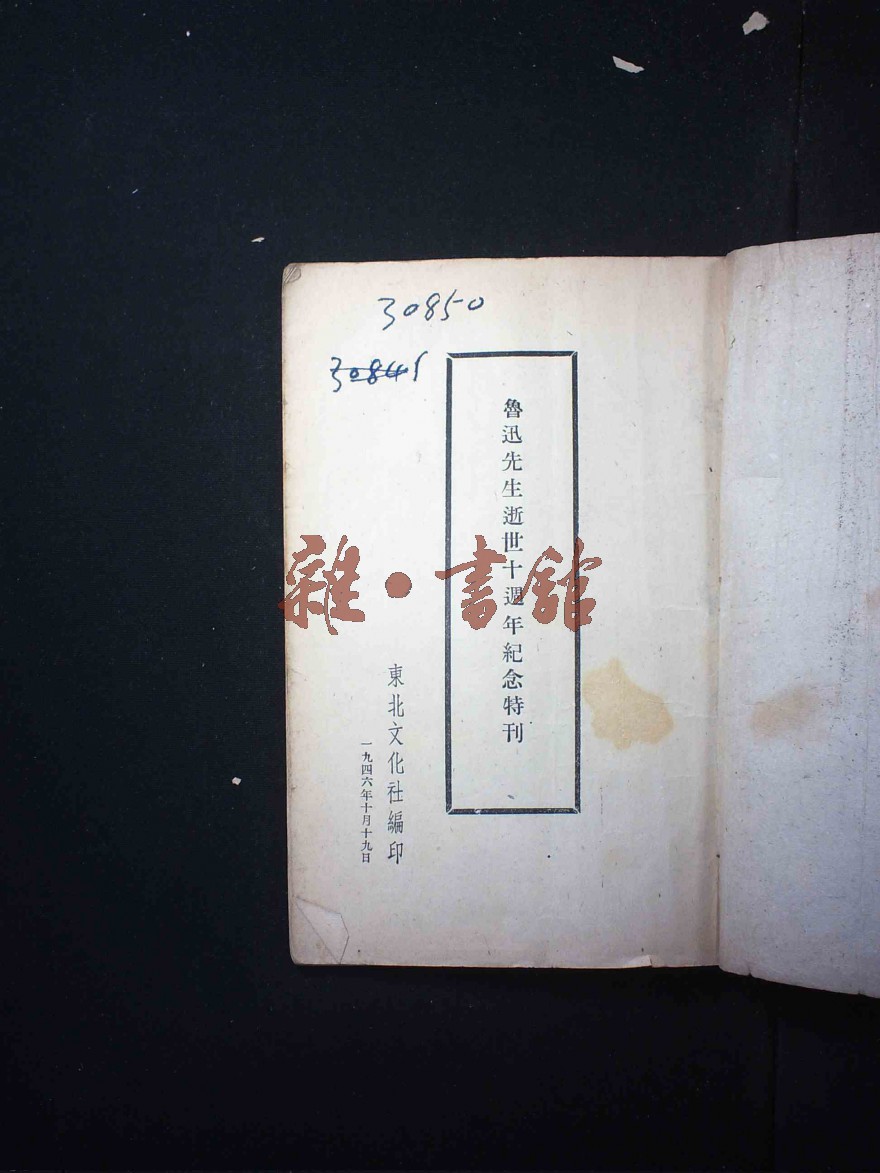 30850
30841
魯迅先生逝世十週年紀念特刊
雜·書館
東北文化社編印
一九四六年十月十九日